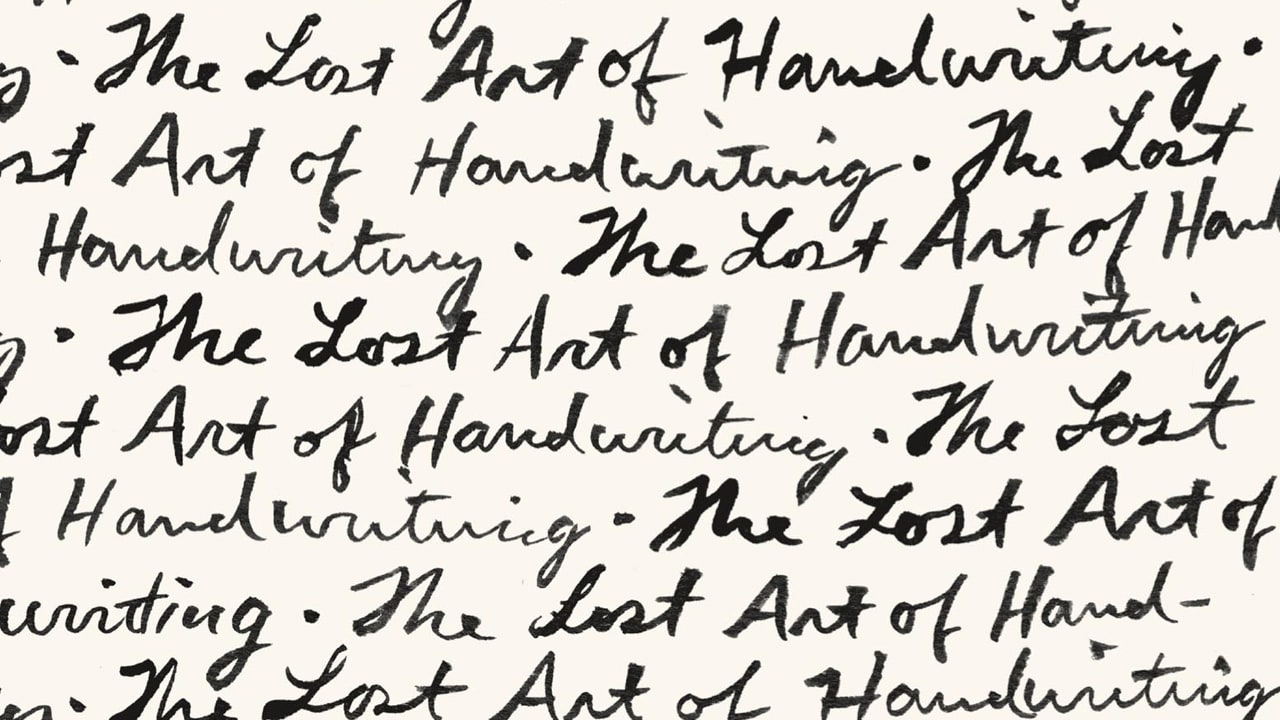 · The Lost Art of Handwriting ·
Art of Handwriting · The Lost
Handwriting · The Lost Art of Hand
· The Lost Art of Handwriting
ost Art of Handwriting · The Lost
Handwriting · The Lost Art of
writing · The Lost Art of Hand-
· The Lost Art of Handwriting